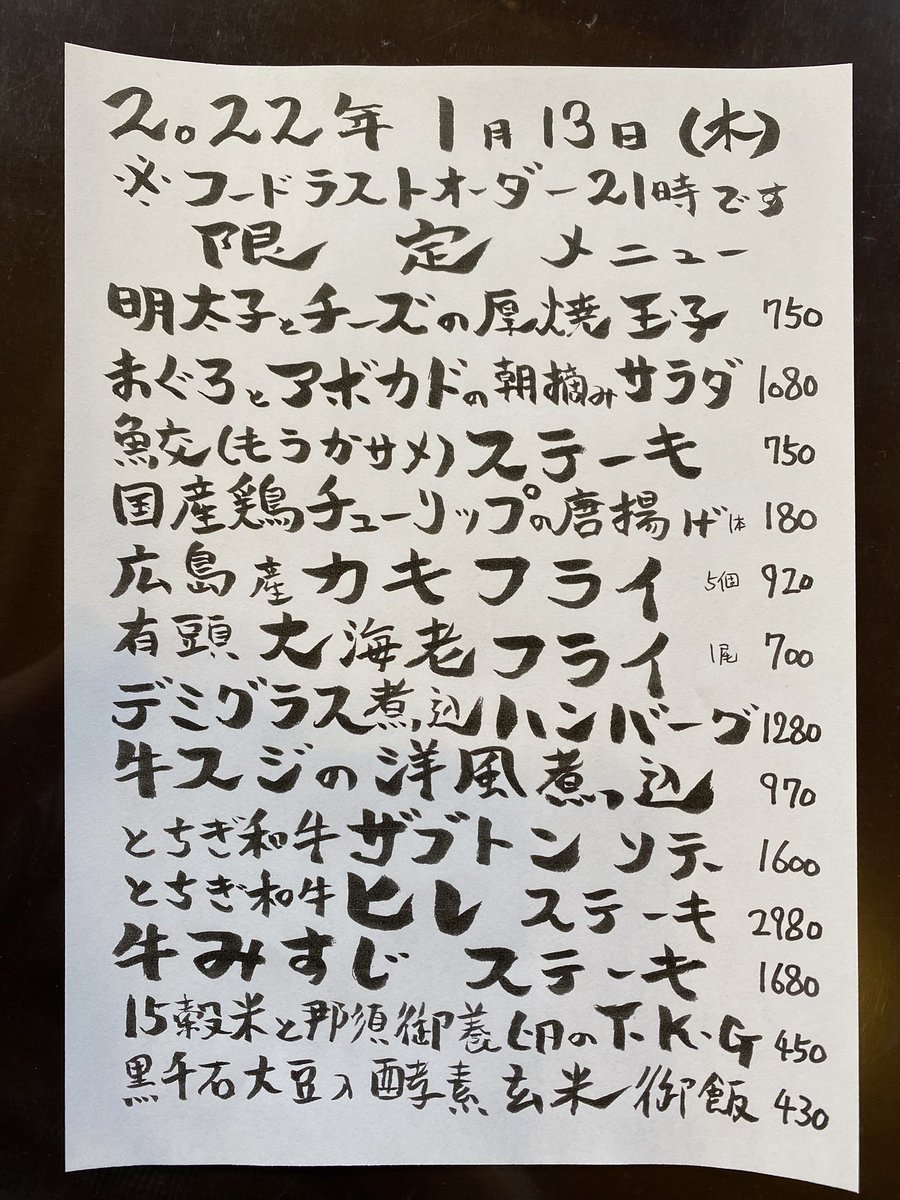 2022年 1月13日(木)
※フードラストオーダー21時です
限定メニュー
明太子とチーズの厚焼玉子 750
まぐろとアボカドの朝摘みサラダ 1080
鮫(もうかサメ)ステーキ 750
国産鶏チューリップの唐揚げ 1本 180
広島産カキフライ 5個 920
有頭大海老フライ 1尾 700
デミグラス煮込ハンバーグ 1280
牛スジの洋風煮込 970
とちぎ和牛ザブトンソテー 1600
とちぎ和牛ヒレステーキ 2980
牛みすじステーキ 1680
15穀米と那須御養卵のT.K.G 450
黒千石大豆入酵素玄米御飯 430